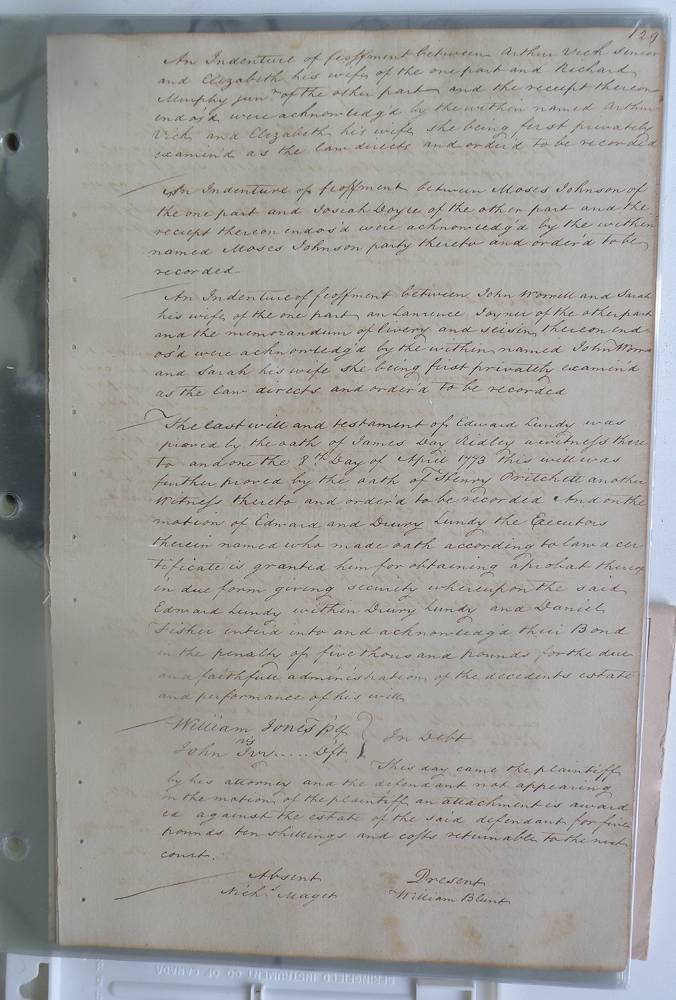 129
An Indenture of feoffment between Arthur Vick Senior
and Elizabeth his wife of the one part and Richard
Murphy junr of the other part and the receipt thereon
endos'd were acknowledg'd by the within named Arthur
Vick and Elizabeth his wife she being first privately
examin'd as the law directs and order'd to be recorded
An Indenture of feoffment between Moses Johnson of
the one part and Josiah Doyce of the other part and the
reciept thereon endos'd were acknowledg'd by the within
named Moses Johnson party thereto and order'd to be
recorded
An Indenture of feoffment between John Worrell and Sarah
his wife of the one part an Lawrence Joyner of the other part
and the memorandum of livery and seisin thereon end
os'd were acknowledg'd by the within named John Worre
and Sarah his wife she being first privately examin'd
as the law directs and order'd to be recorded
The last will and testament of Edward Lundy was
proved by the oath of James Day Ridley a witness there
to and one the 8th Day of April 1773 this will was
further proved by the oath of Henry Pritchett another
Witness thereto and order'd to be recorded And on the
motion of Edward and Drury Lundy the Executors
therein named who made oath according to law a cer
tificate is granted him for obtaining a probat thereof
in due form giving security whereupon the said
Edward Lundy within Drury Lundy and Daniel
Fisher enter'd into and acknowledg'd their Bond
in the penalty of five thousand pounds for the due
an a faithfull administration of the decedents estate
and performance of his will
William Jones plf
vs
John Ivy ..... Dft
In Debt
This day came the plaintiff
by his attorney and the defendant not appearing
on the motion of the plaintiff an attachment is award
ed against the estate of the said defendant for five
pounds ten shillings and costs returnable to the next
court.
Absent
Nichs Maget
Present
William Blunt
SPRINGFIELD INSTRUMENT CO OF CANADA